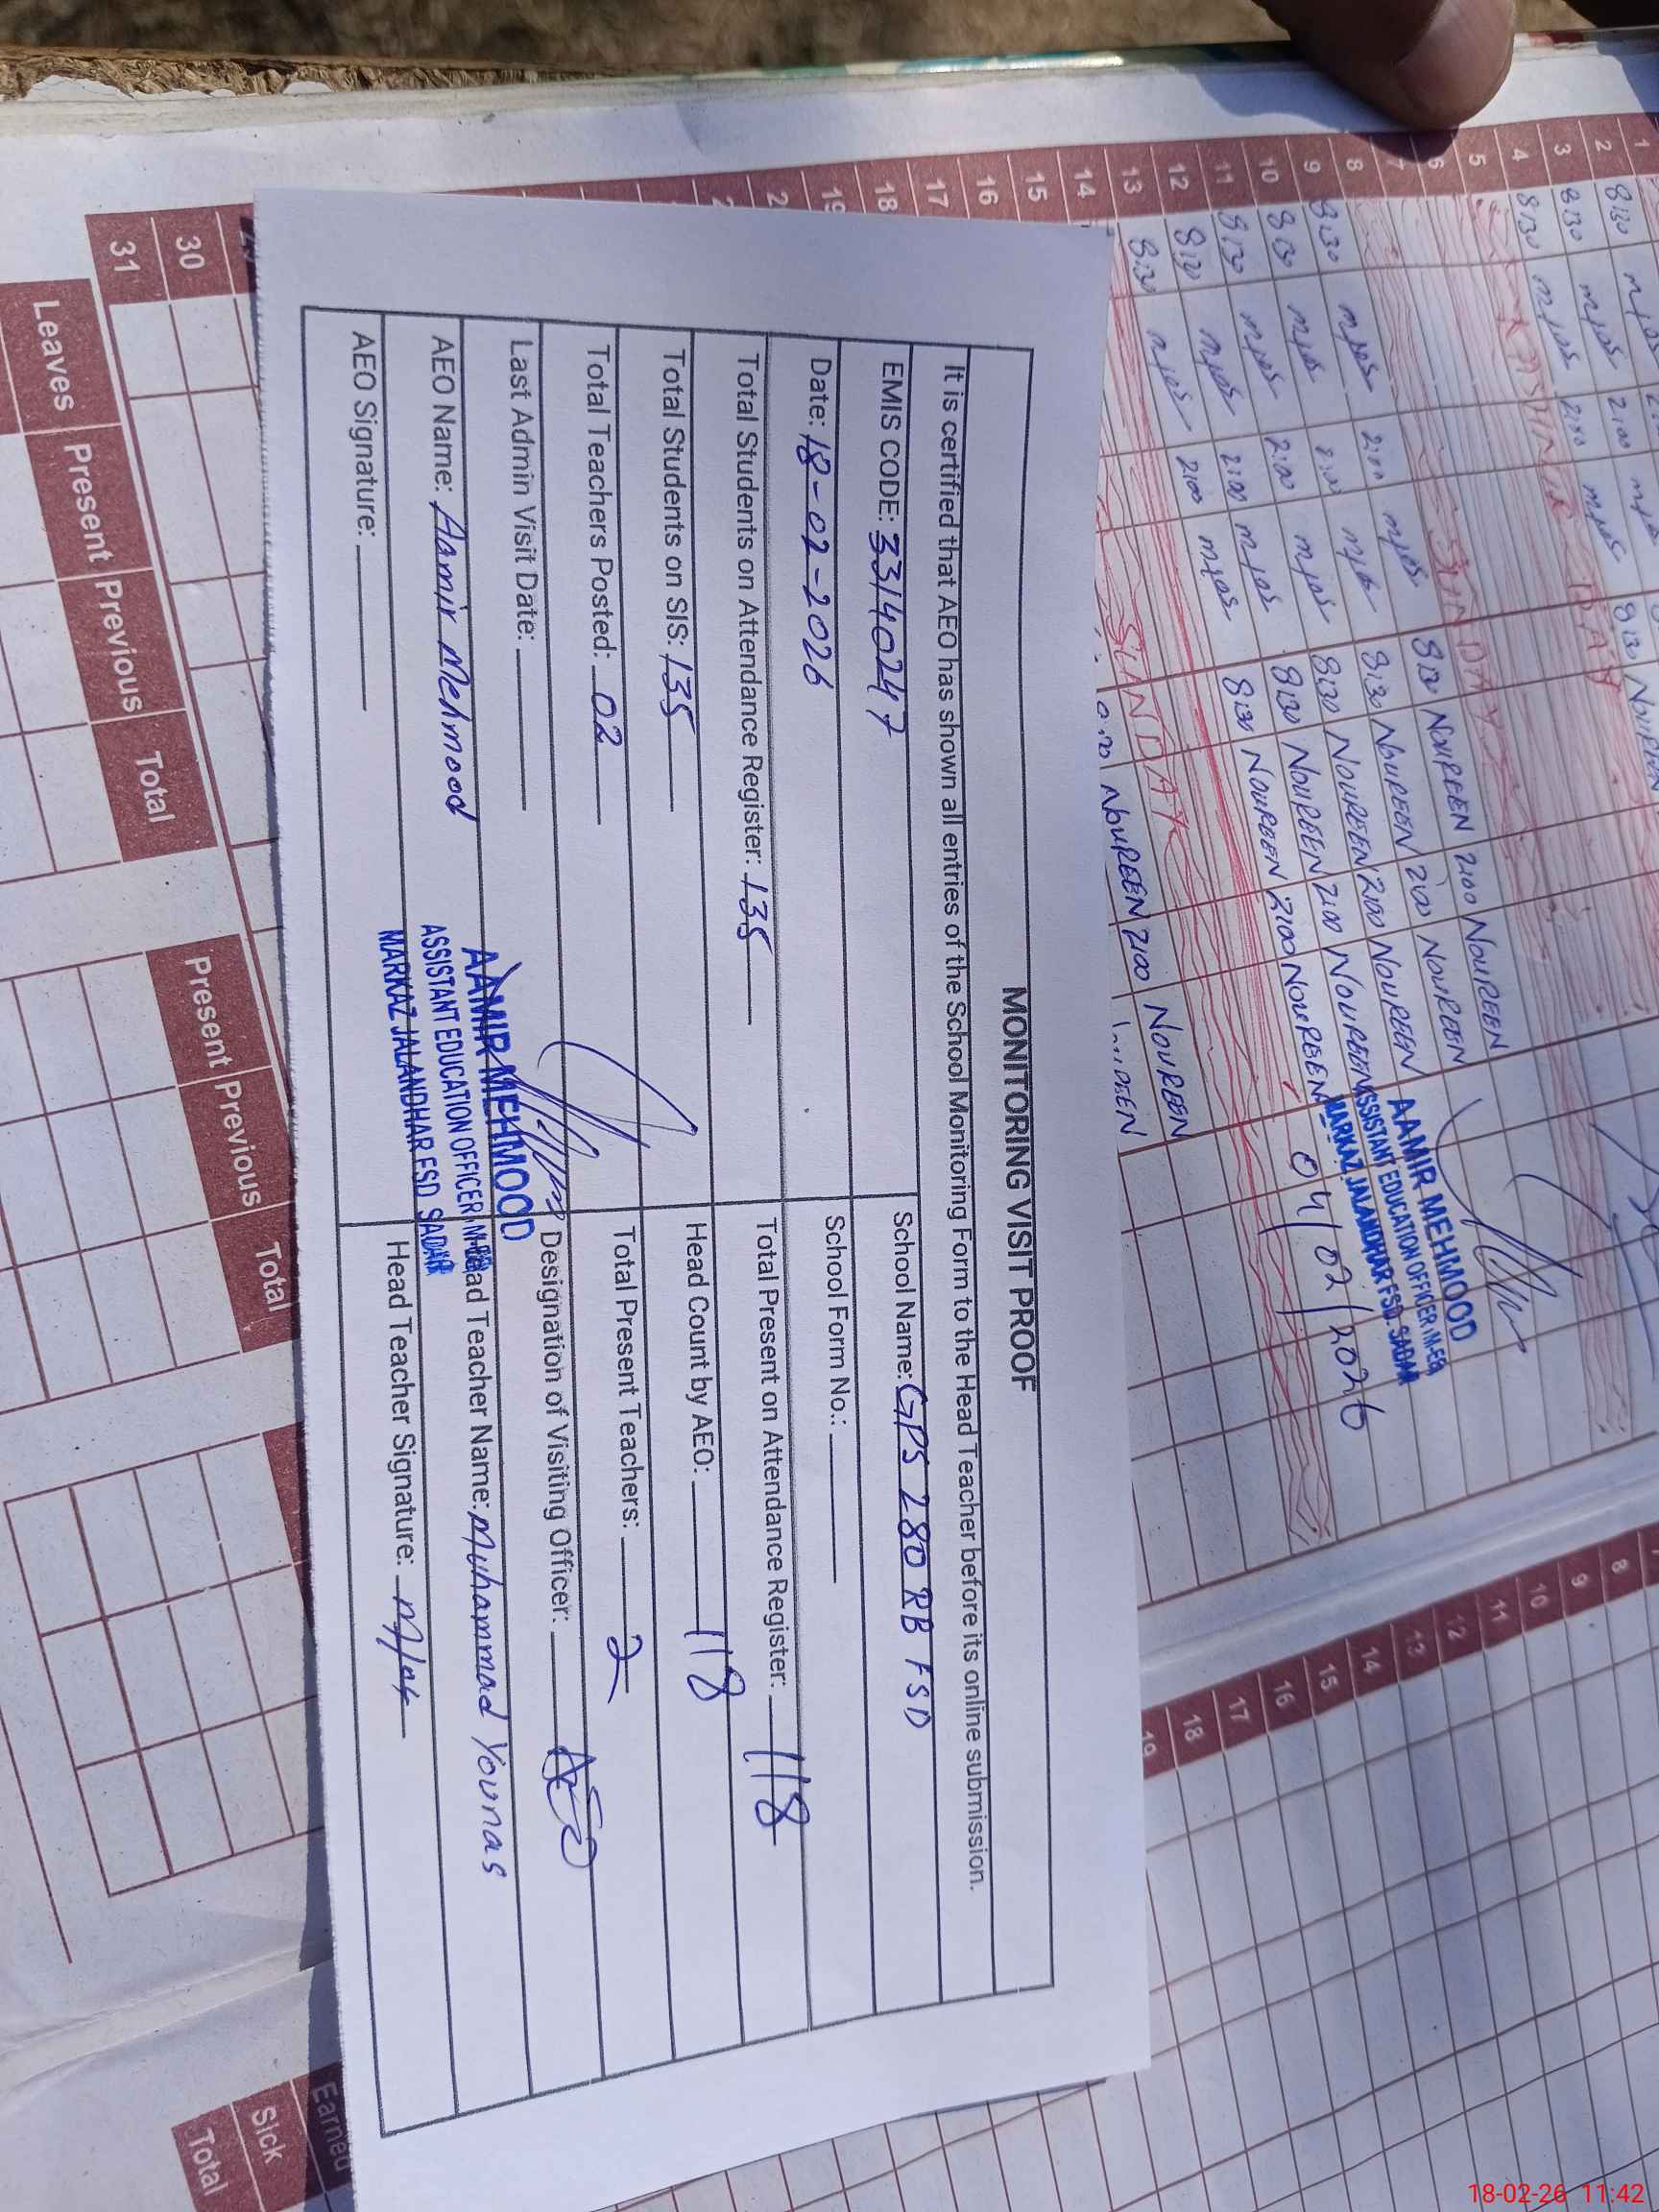 MONITORING VISIT PROOF
It is certified that AEO has shown all entries of the School Monitoring Form to the Head Teacher before its online submission.
EMIS CODE: 33140247 School Name: GPS 280 RB FSD
Date: 18-02-2026 School Form No.:
Total Students on Attendance Register: 135 Total Present on Attendance Register: 118
Total Students on SIS: 135 Head Count by AEO: 118
Total Teachers Posted: 02 Total Present Teachers: 2
Last Admin Visit Date: Designation of Visiting Officer: AEO
AEO Name: Aamir Mehmood Head Teacher Name: Muhammad Younas
AEO Signature: Head Teacher Signature:
AAMIR MEHMOOD
ASSISTANT EDUCATION OFFICER
MARKAZ JALANDHAR FSD SADAR
1
2 8:30 2:00
3 8:30 2:00
4 8:30
5
6 8:30 NOUREEN 2:00 NOUREEN
7 SUNDAY
8
9 8:30 2:00 8:30 NOUREEN 2:00 NOUREEN
10 8:30 8:30 NOUREEN 2:00 NOUREEN
11 8:30 2:00 8:30 NOUREEN 2:00 NOUREEN
12 8:30 2:00 8:30 NOUREEN 2:00 NOUREEN
13 8:30 2:00
14 SUNDAY
15
16
17
18
NOUREEN 2:00 NOUREEN
AAMIR MEHMOOD
ASSISTANT EDUCATION OFFICER M-EE
MARKAZ JALANDHAR FSD. SADAR
04/02/2026
30
31
Leaves Present Previous Total
Present Previous Total
8
9
10
11
12
13
14
15
16
17
18
19
Earned
Sick
Total
18-02-26 11:42